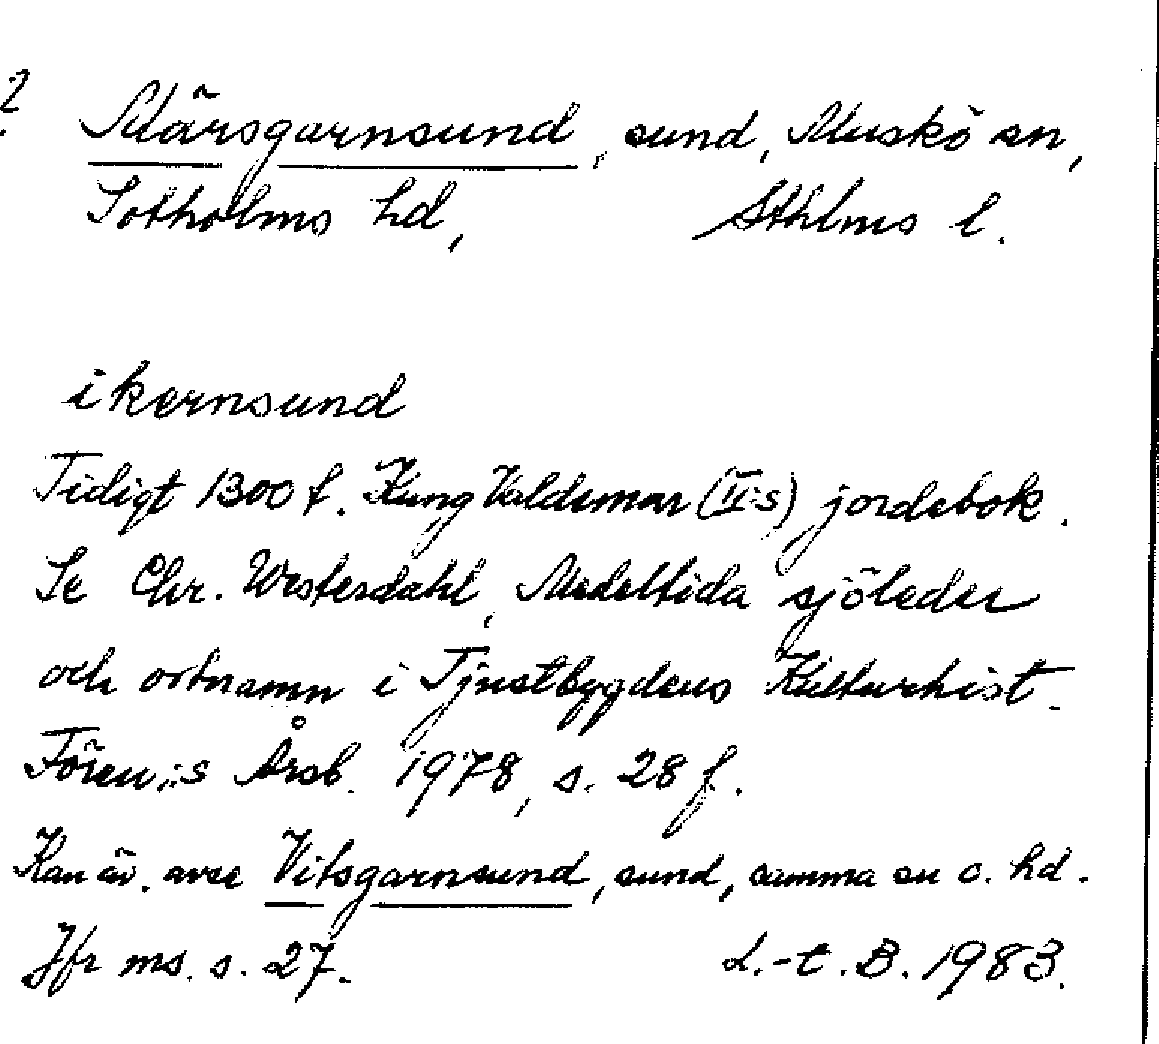 ? Märsgarnsund, sund, Muskö sn,
Sotholms hd, Sthlms l.
ikernsund
Tidigt 1300 t. Kung Valdemar (II:s) jordebok.
Se Chr. Westerdahl, Medeltida sjöleder
och ortnamn i Tjustbygdens Kulturhist.
Fören:s Årsb. 1978, s. 28 f.
Kan äv. avse Vitsgarnsund, sund, samma sn o. hd.
Jfr ms. s. 27. L.-t. B. 1983.